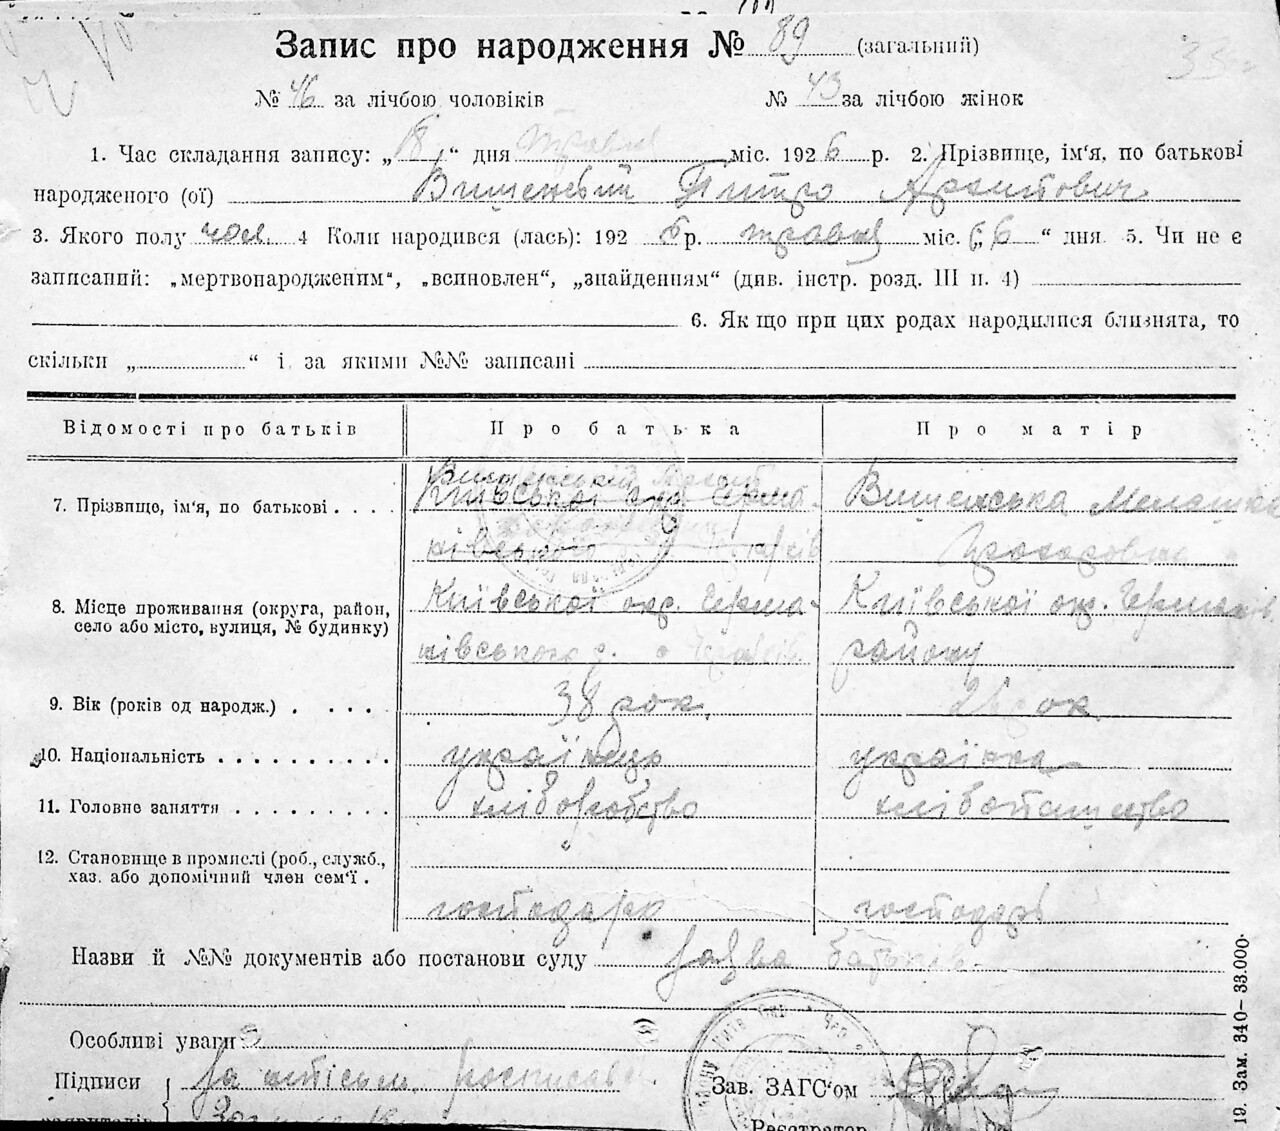 Запис про народження № 89 (загальний)
№ 46 за лічбою чоловіків № 43 за лічбою жінок
1. Час складання запису: „18“ дня травня міс. 1926 р. 2. Прізвище, ім'я, по батькові
народженого (ої) Вишенський Питро Архипович
3. Якого полу чол. 4 Коли народився (лась): 192 6 р. травня міс. „6“ дня 5. Чи не є
записаний: „мертвонародженим“, „всиновлен“, „знайденням“ (див. інстр. розд. III п. 4)
6. Як що при цих родах народилися близнята, то
скільки „ “ і за якими №№ записані
Відомості про батьків Про батька Про матір
7. Прізвище, ім'я, по батькові . . . . Вишенська Мелашка
Київської окр. Герма-
нівського
8. Місце проживання (округа, район, Київської окр. Герма- Київської окр. Германів.
село або місто, вулиця, № будинку) нівського р. с району
9. Вік (років од народж.) . . . . . 38 рок. рок.
10. Національність . . . . . . . . . . українець українка
11. Головне заняття . . . . . . . . . хліборобство
12. Становище в промислі (роб., служб.,
хаз. або допомічний член сем'ї . господарь господарь
Назви й №№ документів або постанови суду заява батьків
Особливі уваги
Підписи За
Зав. ЗАГС'ом
заявителів
Реєстратор
19. Зам. 340–33.000·